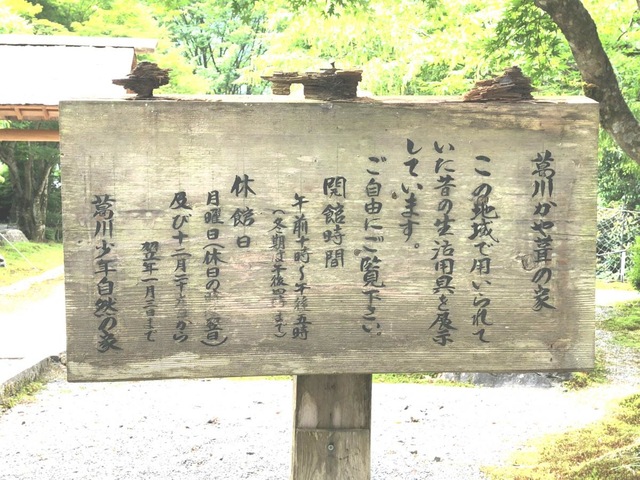 萬川かや葺の家
この地域で用いられて
いた昔の生活用具を展示
しています。
ご自由にご覧下さい。
開館時間
午前十時〜午後五時
(冬期は午後四時まで)
休館日
月曜日(休日の時翌日)
及び十二月二十九日から
翌年一月三日まで
萬川少年自然の家